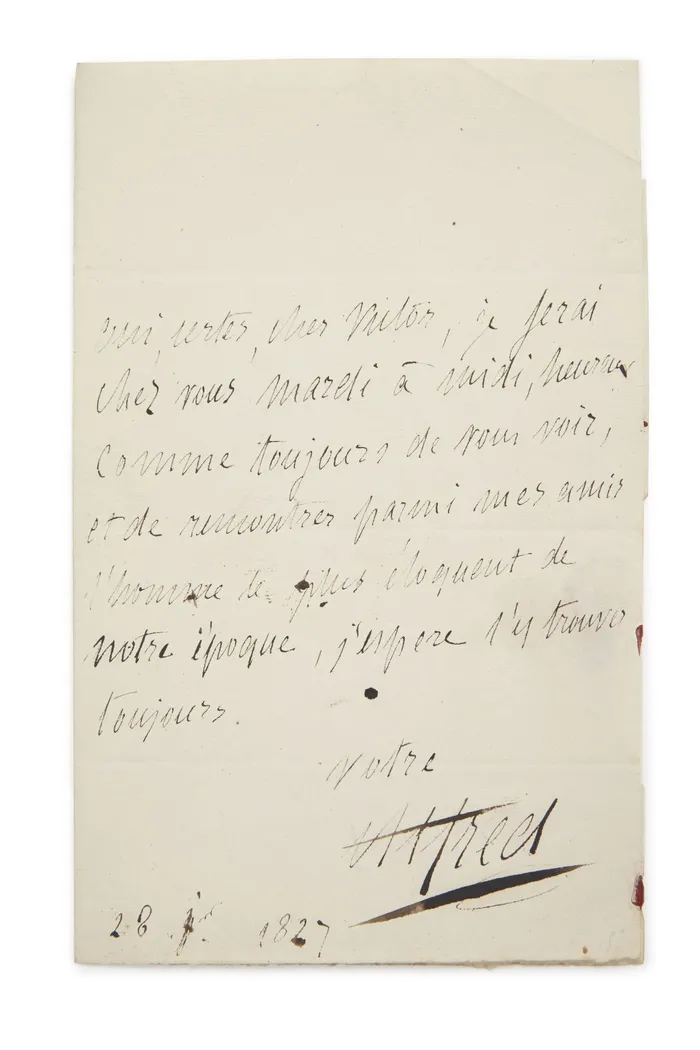 oui, certes, cher Victor, je serai
chez vous mardi à midi, heureux
comme toujours de vous voir,
et de rencontrer parmi mes amis
l'homme le plus éloquent de
notre époque, j'espère l'y trouver
toujours.
votre
Alfred
28 1827